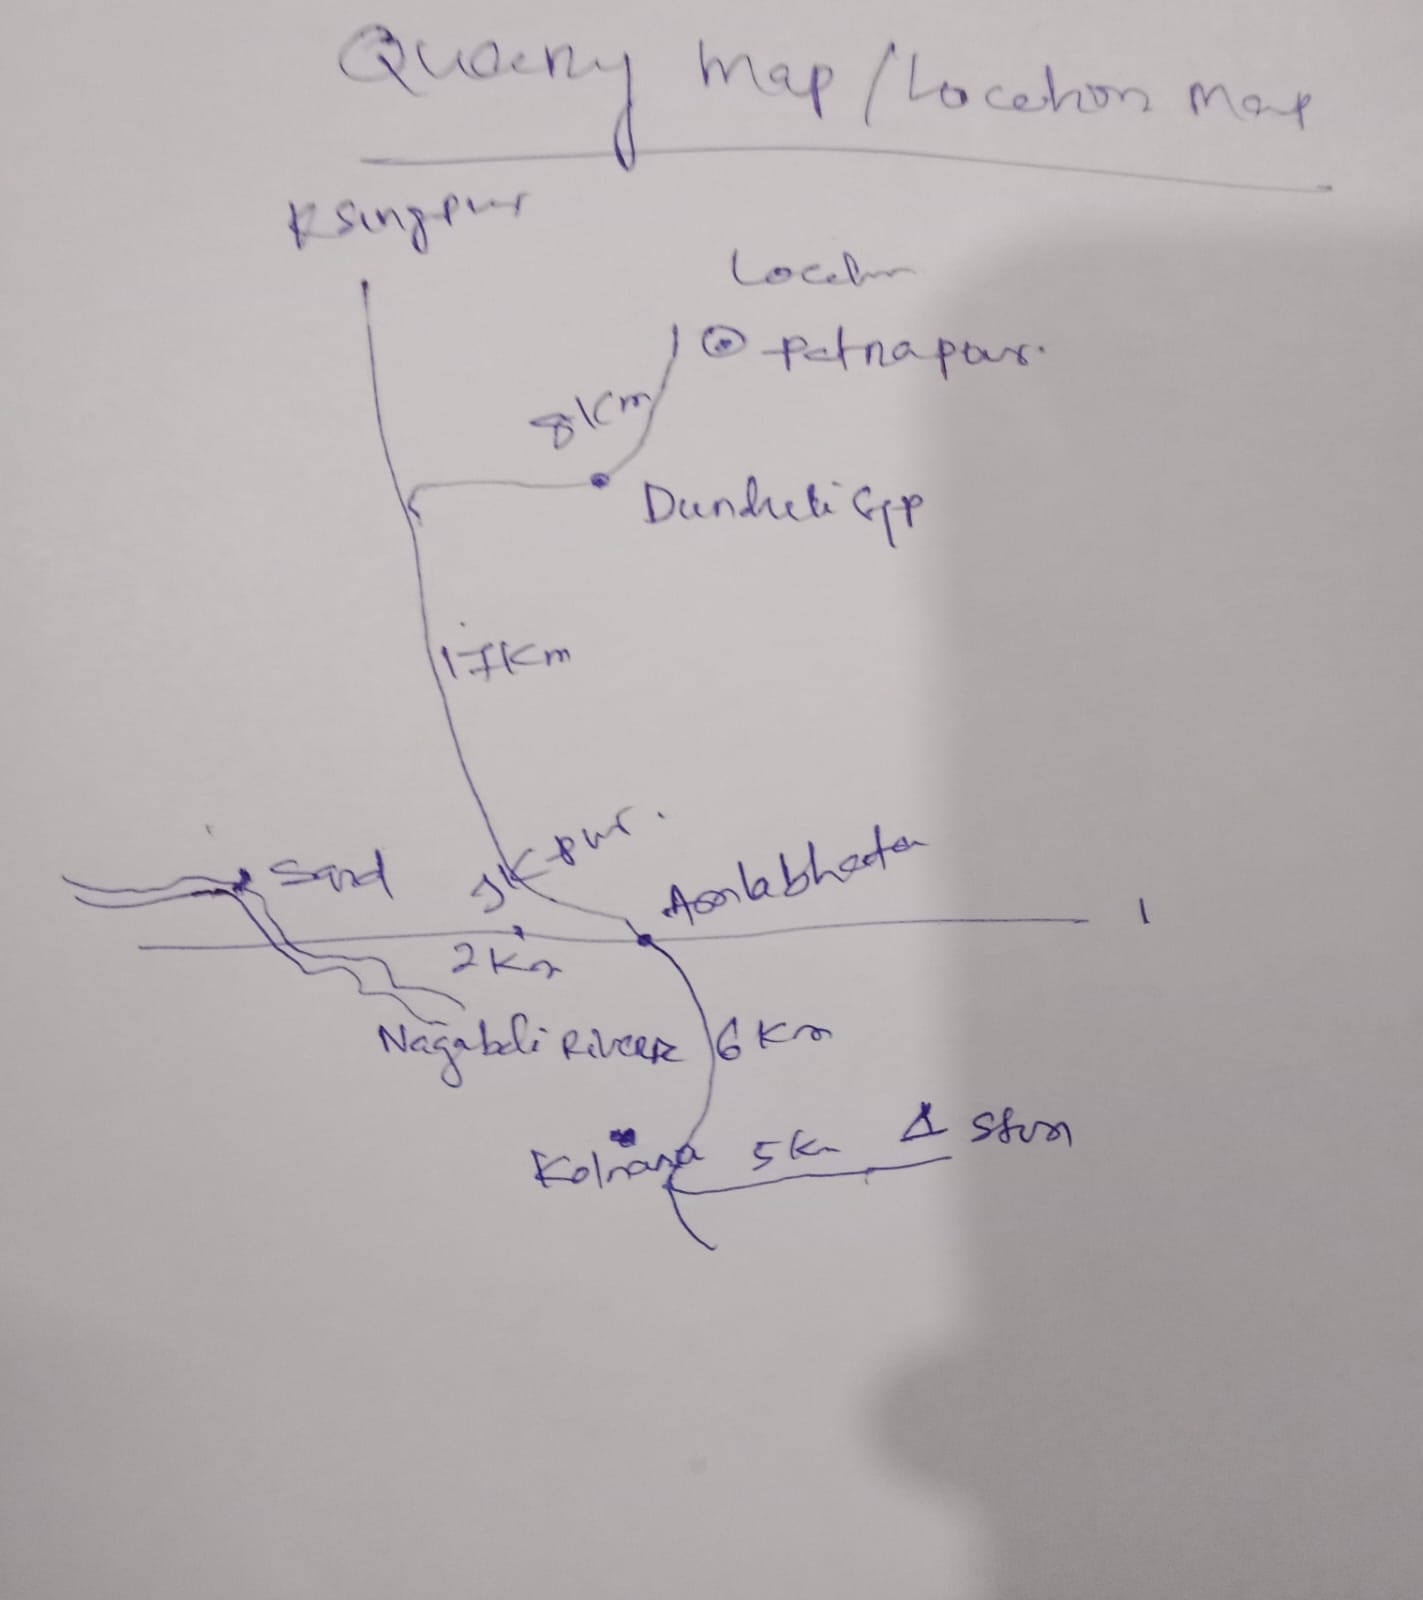 Quarry Map / Location Map
K singpur
Location
Patnapour.
8 Km
Dunduli GP
17 Km
JK pur.
Sand
Amlabhata
2 Km
Nagabeli River
6 Km
Kolnara
5 Km
Ston